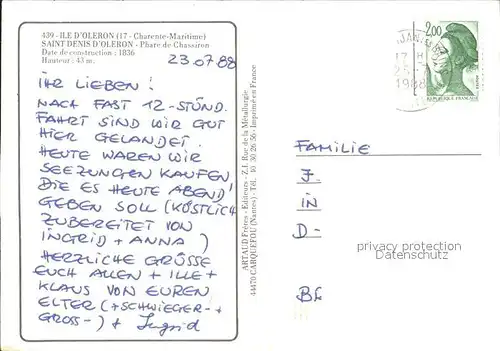 439 - ILE D'OLERON (17 - Charente-Maritime)
SAINT DENIS D'OLERON - Phare de Chassiron
Date de construction : 1836
Hauteur : 43 m.
23.07.88
IHR LIEBEN!
NACH FAST 12-STÜND.
FAHRT SIND WIR GUT
HIER GELANDET.
HEUTE WAREN WIR
SEEZUNGEN KAUFEN
DIE ES HEUTE ABEND
GEBEN SOLL (KÖSTLICH
ZUBEREITET VON
INGRID + ANNA)
HERZLICHE GRÜSSE
EUCH ALLEN + ILLE +
KLAUS VON EUREN
ELTER (+ SCHWIEGER- +
GROSS-) + Ingrid
ARTAUD Frères - Editeurs - Z.I. Rue de la Métallurgie
44470 CARQUEFOU (Nantes) - Tél. 40 30 26 56 - Imprimé en France
2,00
REPUBLIQUE FRANÇAISE
1988
FAMILIE
J.
IN
D-
privacy protection
Datenschutz